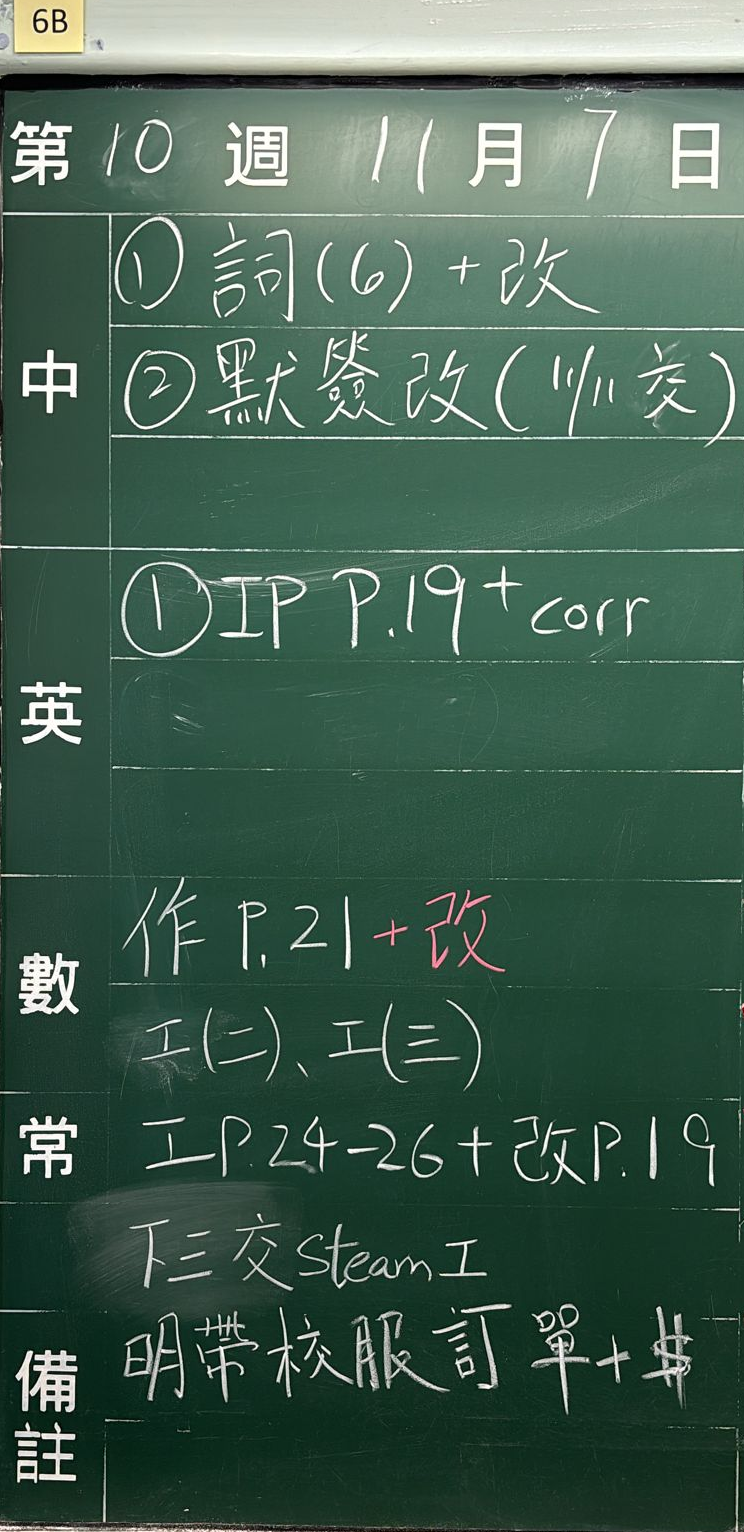 6B
第10週 11月7日
中
① 詞(6)+改
② 默簽改(11/11交)
英
① IP P.19+corr
數
作 P.21+改
工(二)、工(三)
常
工P.24-26+改P.19
下三交Steam工
備註
明帶校服訂單+$